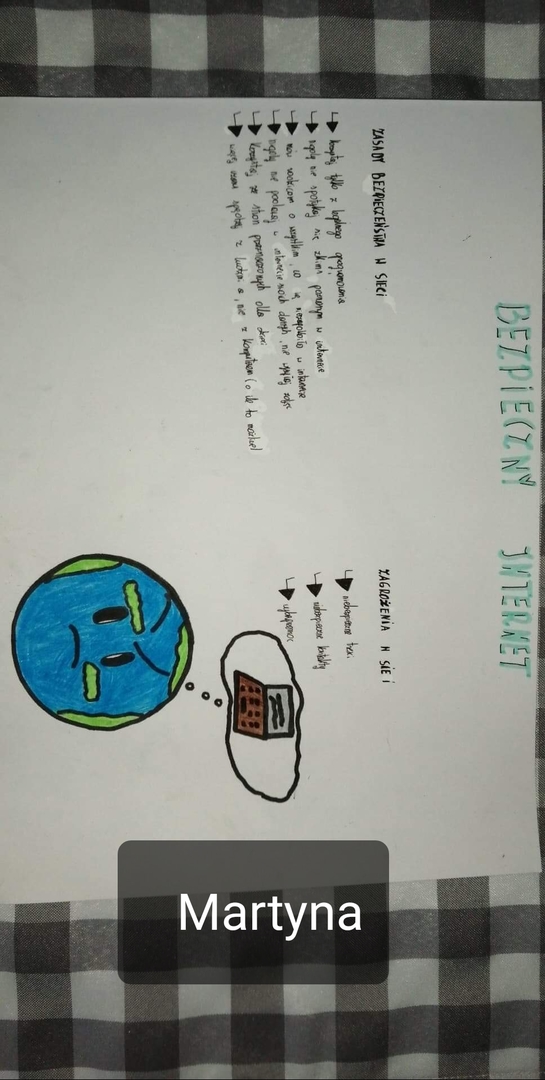 BEZPIECZNY INTERNET
ZASADY BEZPIECZEŃSTWA W SIECI
korzystaj tylko z legalnego oprogramowania
nigdy nie spotykaj się z kimś poznanym w internecie
mów rodzicom o wszystkim, co cię w internecie
nigdy nie podawaj w internecie swoich danych, nie
korzystaj ze stron przeznaczonych dla dzieci
więcej czasu spędzaj z ludźmi a, nie z komputerem (o ile to możliwe)
ZAGROŻENIA W SIECI
niebezpieczne treści
niebezpieczne kontakty
cyberprzemoc
Martyna